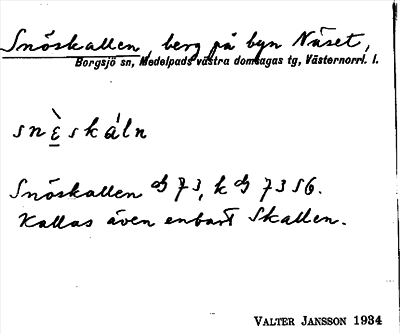 Snöskallen, berg på byn Näset,
Borgsjö sn, Medelpads västra domsagas tg, Västernorrl. l.
snὲskáln
Snöskallen 73, k 73 S6.
Kallas även enbart Skallen.
VALTER JANSSON 1934